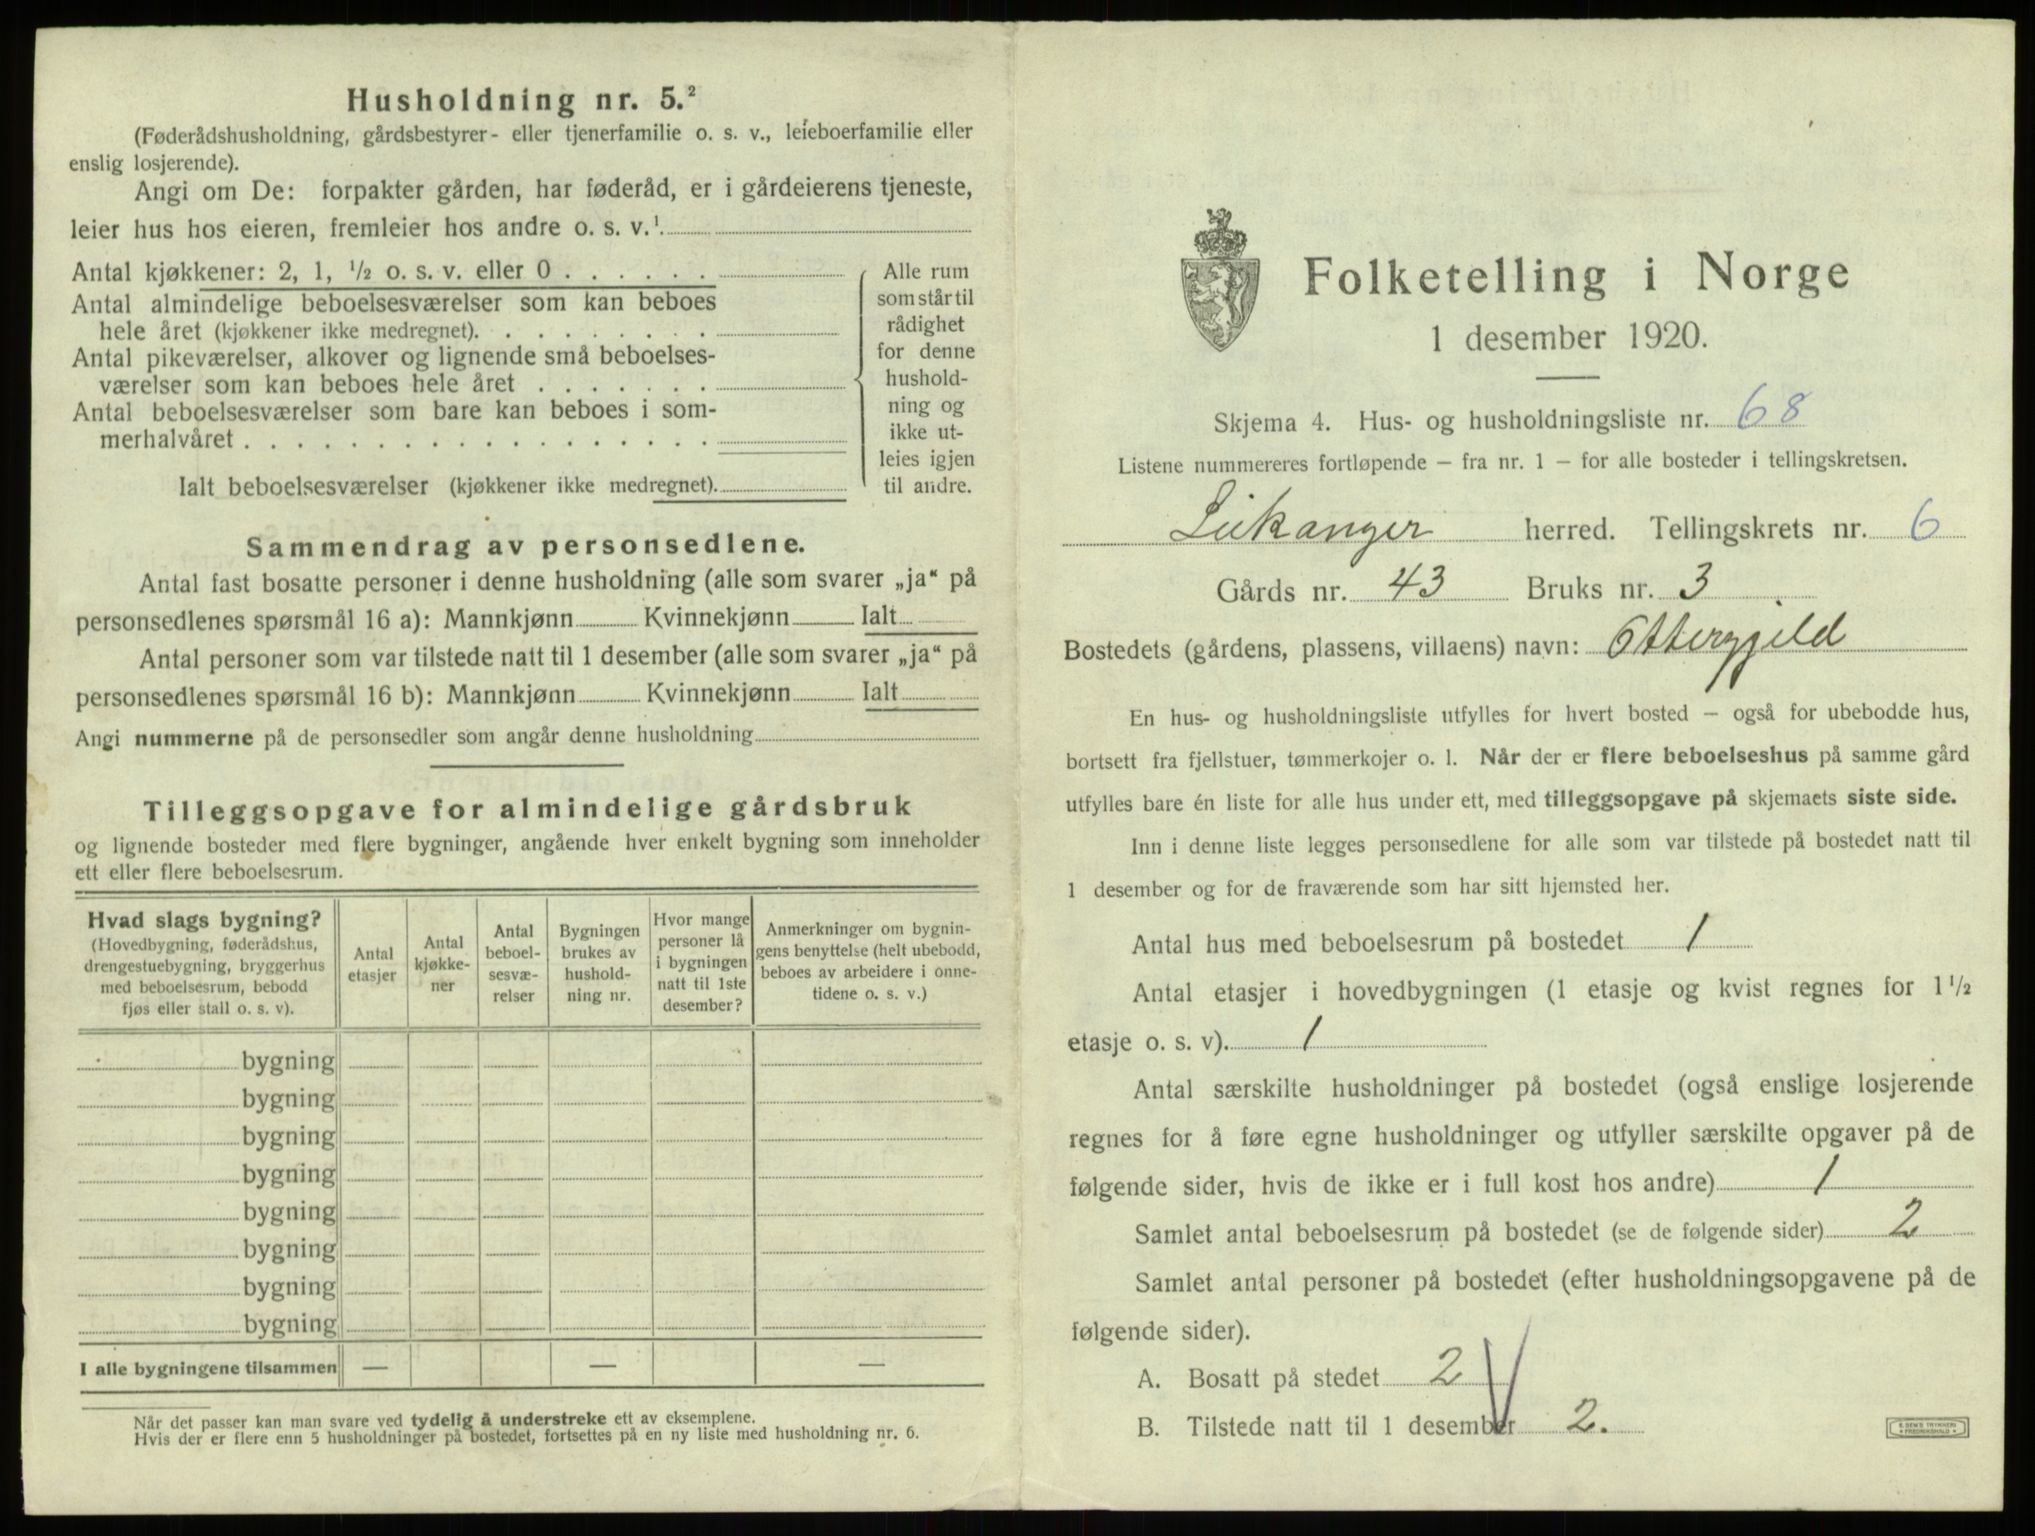 Husholdning nr. 5.²
(Føderådshusholdning, gårdsbestyrer- eller tjenerfamilie o. s. v., leieboerfamilie eller
enslig losjerende).
Angi om De: forpakter gården, har føderåd, er i gårdeierens tjeneste,
leier hus hos eieren, fremleier hos andre o. s. v.¹
Antal kjøkkener: 2, 1, ½ o. s. v. eller 0 . . . . . .
Antal almindelige beboelsesværelser som kan beboes
hele året (kjøkkener ikke medregnet). . . . . . . . .
Antal pikeværelser, alkover og lignende små beboelses-
værelser som kan beboes hele året . . . . . . .
Antal beboelsesværelser som bare kan beboes i som-
merhalvåret . . . . . . . . . . . . . . . . . .
Ialt beboelsesværelser (kjøkkener ikke medregnet).
Alle rum
som står til
rådighet
for denne
hushold-
ning og
ikke ut-
leies igjen
til andre.
Sammendrag av personsedlene.
Antal fast bosatte personer i denne husholdning (alle som svarer „ja“ på
personsedlenes spørsmål 16 a): Mannkjønn Kvinnekjønn Ialt
Antal personer som var tilstede natt til 1 desember (alle som svarer „ja“ på
personsedlenes spørsmål 16 b): Mannkjønn Kvinnekjønn Ialt
Angi nummerne på de personsedler som angår denne husholdning
Tilleggsopgave for almindelige gårdsbruk
og lignende bosteder med flere bygninger, angående hver enkelt bygning som inneholder
ett eller flere beboelsesrum.
Hvad slags bygning?
(Hovedbygning, føderådshus,
drengestuebygning, bryggerhus
med beboelsesrum, bebodd
fjøs eller stall o. s. v).
Antal
etasjer
Antal
kjøkke-
ner
Antal
beboel-
sesvæ-
relser
Bygningen
brukes av
hushold-
ning nr.
Hvor mange
personer lå
i bygningen
natt til 1ste
desember?
Anmerkninger om bygnin-
gens benyttelse (helt ubebodd,
beboes av arbeidere i onne-
tidene o. s. v.)
bygning
bygning
bygning
bygning
bygning
bygning
bygning
bygning
I alle bygningene tilsammen — — —
Når det passer kan man svare ved tydelig å understreke ett av eksemplene.
Hvis der er flere enn 5 husholdninger på bostedet, fortsettes på en ny liste med husholdning nr. 6.
Folketelling i Norge
1 desember 1920.
Skjema 4. Hus- og husholdningsliste nr. 68
Listene nummereres fortløpende – fra nr. 1 – for alle bosteder i tellingskretsen.
Leikanger herred. Tellingskrets nr. 6
Gårds nr. 43 Bruks nr. 3
Bostedets (gårdens, plassens, villaens) navn: Ottergjeld
En hus- og husholdningsliste utfylles for hvert bosted – også for ubebodde hus,
bortsett fra fjellstuer, tømmerkojer o. l. Når der er flere beboelseshus på samme gård
utfylles bare én liste for alle hus under ett, med tilleggsopgave på skjemaets siste side.
Inn i denne liste legges personsedlene for alle som var tilstede på bostedet natt til
1 desember og for de fraværende som har sitt hjemsted her.
Antal hus med beboelsesrum på bostedet 1
Antal etasjer i hovedbygningen (1 etasje og kvist regnes for 1½
etasje o. s. v). 1
Antal særskilte husholdninger på bostedet (også enslige losjerende
regnes for å føre egne husholdninger og utfyller særskilte opgaver på de
følgende sider, hvis de ikke er i full kost hos andre) 1
Samlet antal beboelsesrum på bostedet (se de følgende sider) 2
Samlet antal personer på bostedet (efter husholdningsopgavene på de
følgende sider).
A. Bosatt på stedet 2
B. Tilstede natt til 1 desember 2.